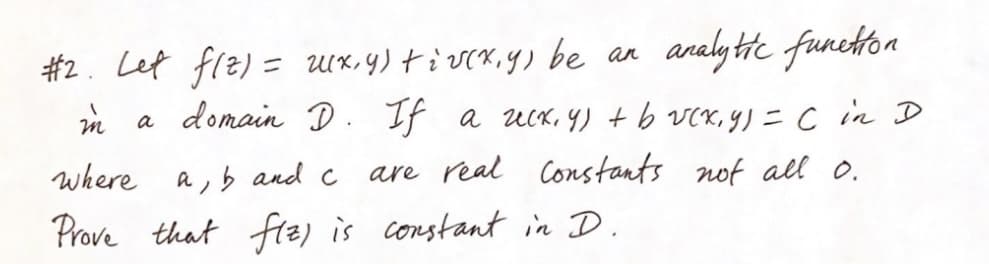 #2. Let f(z) = u(x,y) + i v(x,y) be an analytic function
in a domain D. If a u(x,y) + b v(x,y) = c in D
where a, b and c are real constants not all 0.
Prove that f(z) is constant in D.